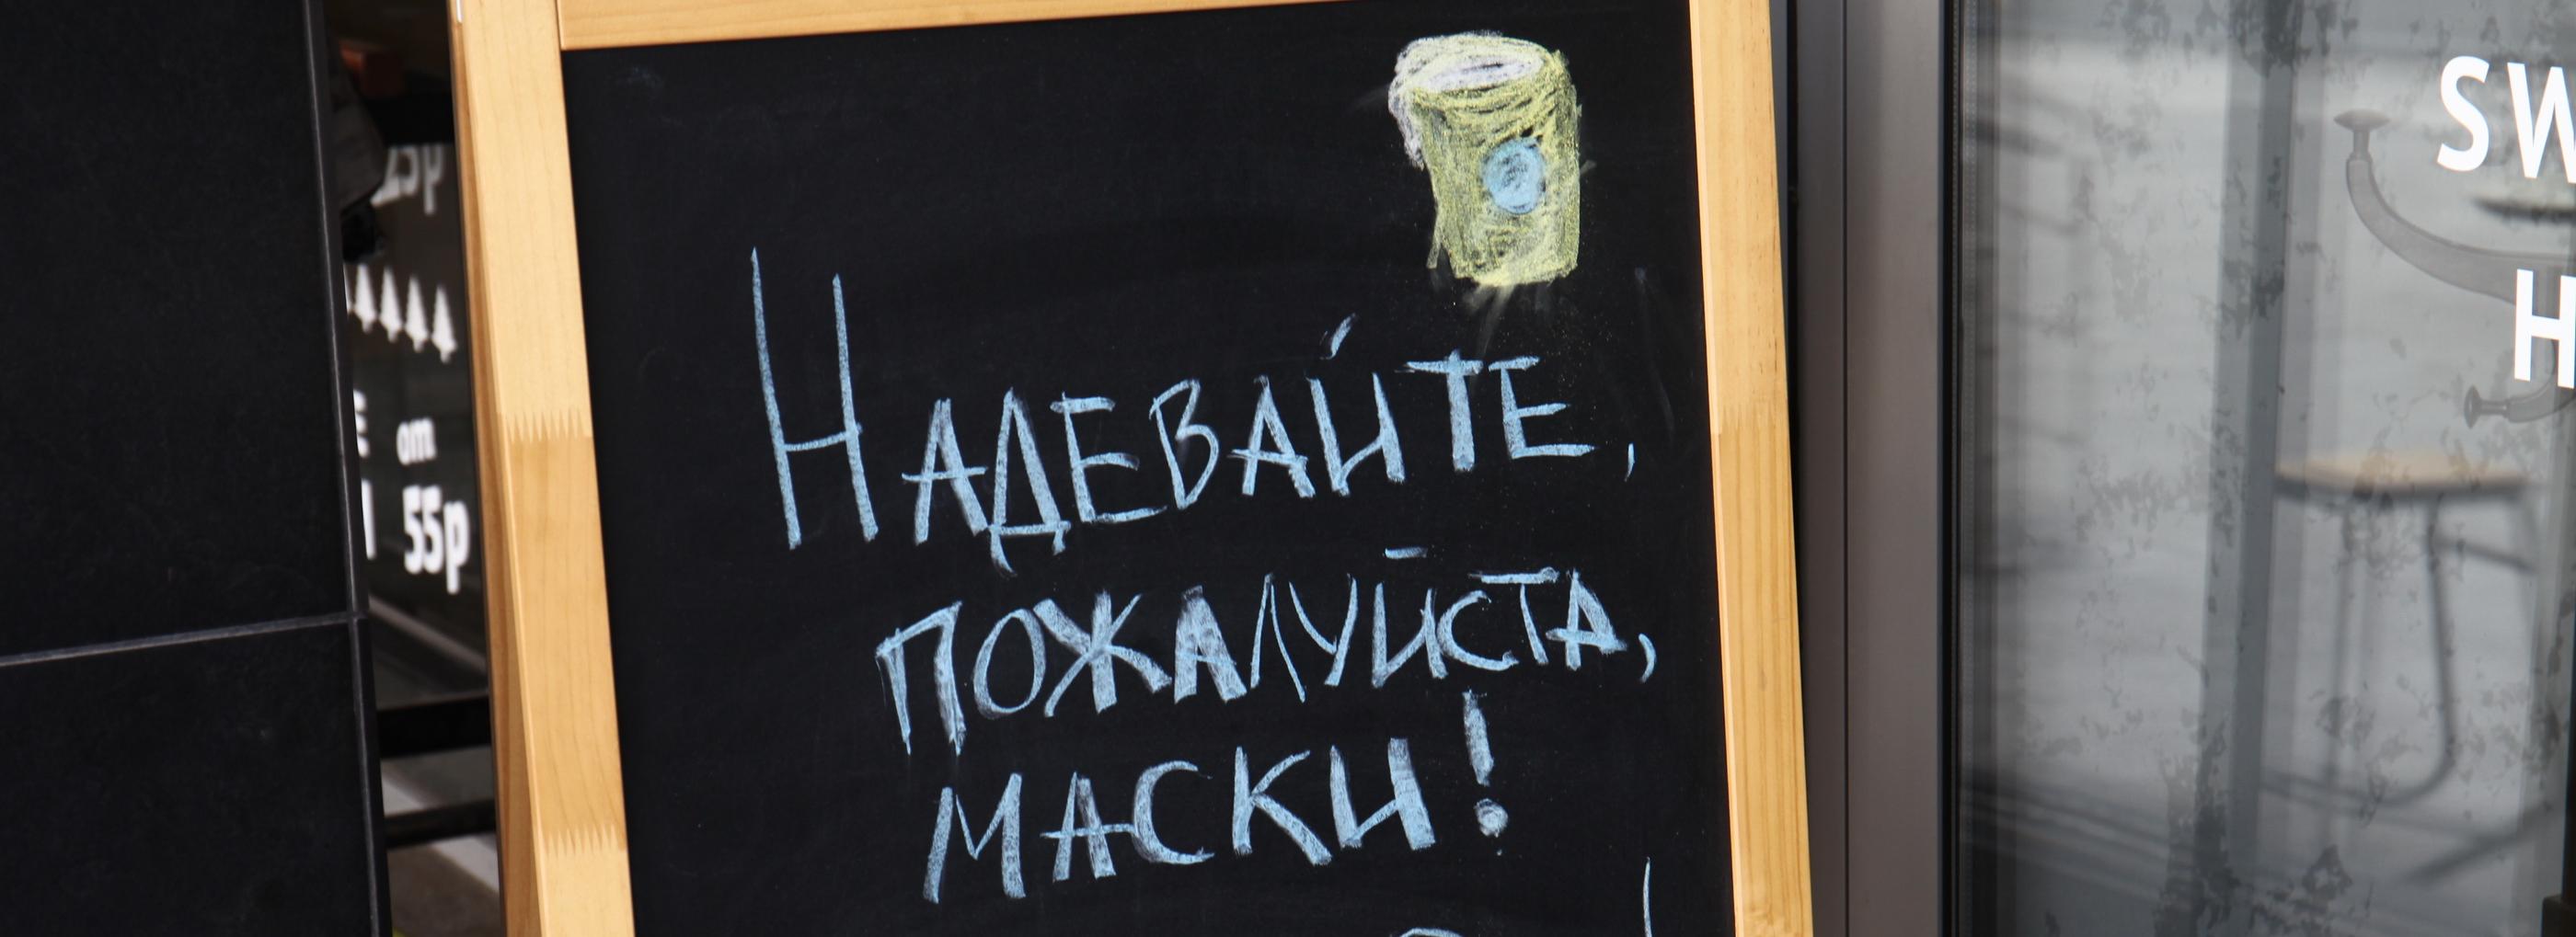 НАДЕВАЙТЕ,
ПОЖАЛУЙСТА,
МАСКИ!
25р
от
55р
SW
H